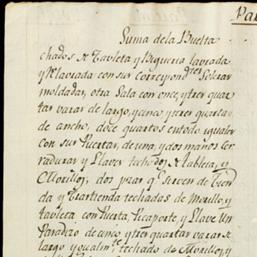 Pa
Suma de la Buelta
chados de Tavleta y Vigueria laviada
y Mlaviada con sus Correspond.tes Soleras
moldadas, otra Sala con once, y tres quar
tas varas de largo, y cinco y tres quartas
de ancho, doce quartos en todo iguales
con sus Puertas, de una, y dos manos Cer
raduras y Llaves techados de tableta, y
Morillos; dos pzas q.e sirven de Tien
da y Trastienda techadas de Morillo, y
tavleta con Puerta, Picaporte, y Llave Un
Paradizo de cinco, y tres quartas varas de
largo techado de Morillo, y